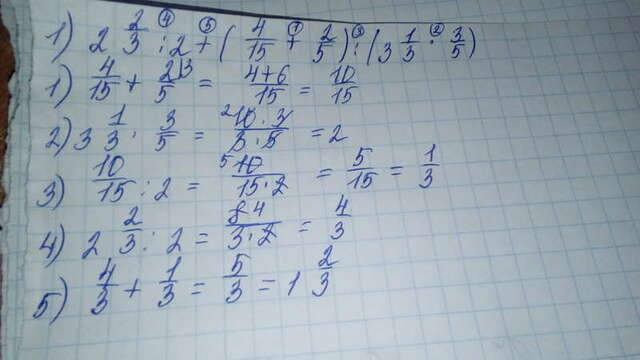 1) 2 2/3 : 2 + (4/15 + 2/5) : (3 1/3 · 3/5)
1) 4/15 + 2/5 = 4+6/15 = 10/15
2) 3 1/3 · 3/5 = 10·3/3·5 = 2
3) 10/15 : 2 = 10/15·2 = 5/15 = 1/3
4) 2 2/3 : 2 = 8 4/3·2 = 4/3
5) 4/3 + 1/3 = 5/3 = 1 2/3